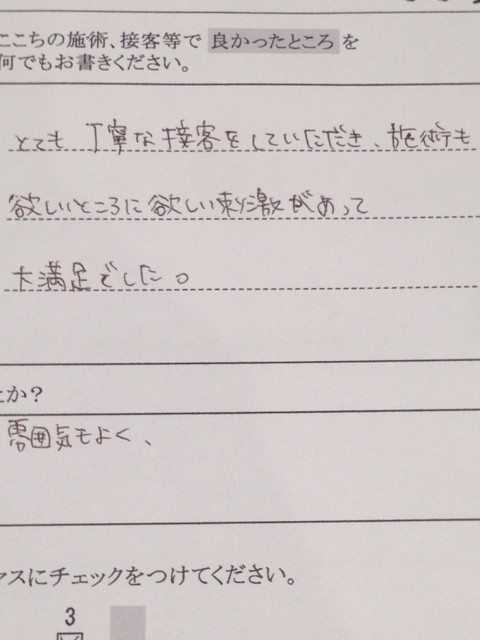 ここちの施術、接客等で 良かったところ を
何でもお書きください。
とても 丁寧な接客をしていただき、施術も
欲しいところに欲しい刺激があって
大満足でした。
たか?
雰囲気もよく、
ァスにチェックをつけてください。
3